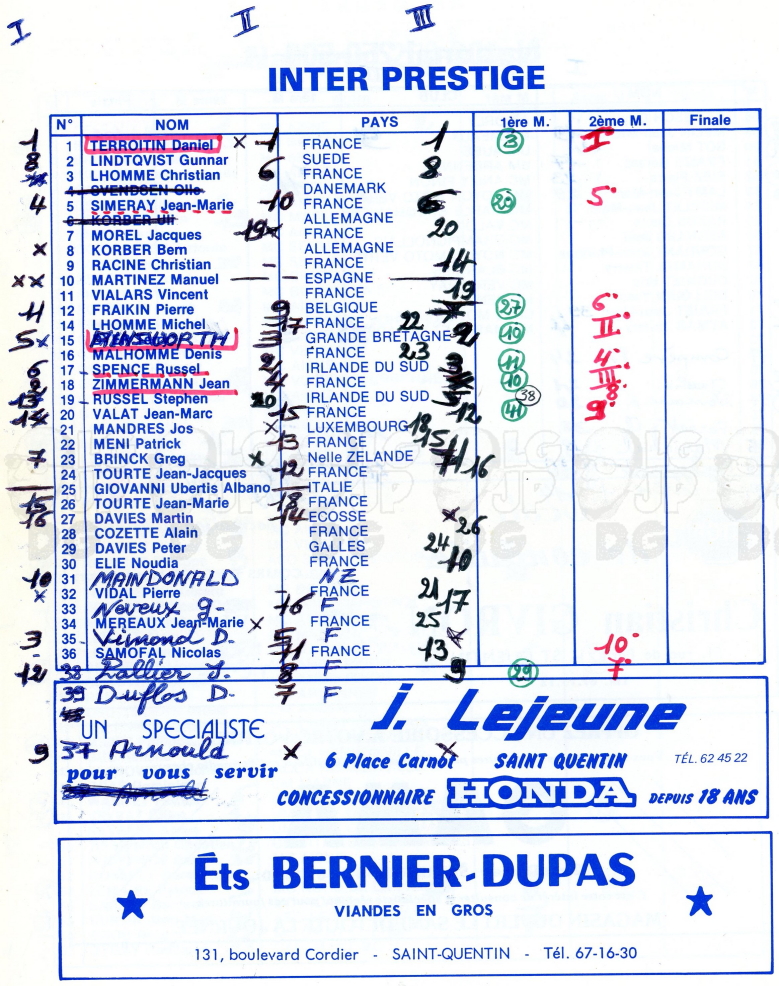 I II III
INTER PRESTIGE
N° NOM PAYS 1ère M. 2ème M. Finale
1 1 TERROITIN Daniel x 1 FRANCE 1 3 I
8 2 LINDTQVIST Gunnar SUEDE
3 LHOMME Christian 6 FRANCE 8
4 SVENDSEN Olle DANEMARK
4 5 SIMERAY Jean-Marie 10 FRANCE 6 20 5
6 KORBER Uli ALLEMAGNE
7 MOREL Jacques 19 x FRANCE 20
x 8 KORBER Bern ALLEMAGNE
9 RACINE Christian FRANCE 14
xx 10 MARTINEZ Manuel ESPAGNE
11 VIALARS Vincent FRANCE 19
11 12 FRAIKIN Pierre 9 BELGIQUE 27 6
14 LHOMME Michel 17 FRANCE 22 II
5 x 15 AINSWORTH 3 GRANDE BRETAGNE 2 10
16 MALHOMME Denis FRANCE 23
6 17 SPENCE Russel 2 IRLANDE DU SUD 3 11 4
2 18 ZIMMERMANN Jean 4 FRANCE 10 III
13 19 RUSSEL Stephen 20 IRLANDE DU SUD 5 38 8
14 20 VALAT Jean-Marc 15 FRANCE 12 41 9
21 MANDRES Jos x LUXEMBOURG 18
22 MENI Patrick 13 FRANCE 15 11
7 23 BRINCK Greg x Nelle ZELANDE 7
24 TOURTE Jean-Jacques 12 FRANCE 16
25 GIOVANNI Ubertis Albano ITALIE
15 26 TOURTE Jean-Marie 18 FRANCE
16 27 DAVIES Martin 14 ECOSSE x 26
28 COZETTE Alain FRANCE
29 DAVIES Peter GALLES 24
30 ELIE Noudia FRANCE 10
10 31 MAINDONALD NZ
x 32 VIDAL Pierre FRANCE 21
33 Neveux G. 16 F 17
34 MEREAUX Jean-Marie x FRANCE 25
3 35 Vimond D. 5 F x
36 SAMOFAL Nicolas 11 FRANCE 13 10
12 38 Lallier J. 8 F 9 29 7
39 Duflos D. 7 F
J. Lejeune
UN SPECIALISTE
9 37 Arnould x x
6 Place Carnot SAINT QUENTIN TÉL. 62 45 22
pour vous servir
CONCESSIONNAIRE HONDA DEPUIS 18 ANS
37 Arnould
Éts BERNIER-DUPAS
VIANDES EN GROS
131, boulevard Cordier - SAINT-QUENTIN - Tél. 67-16-30
LG JP DG